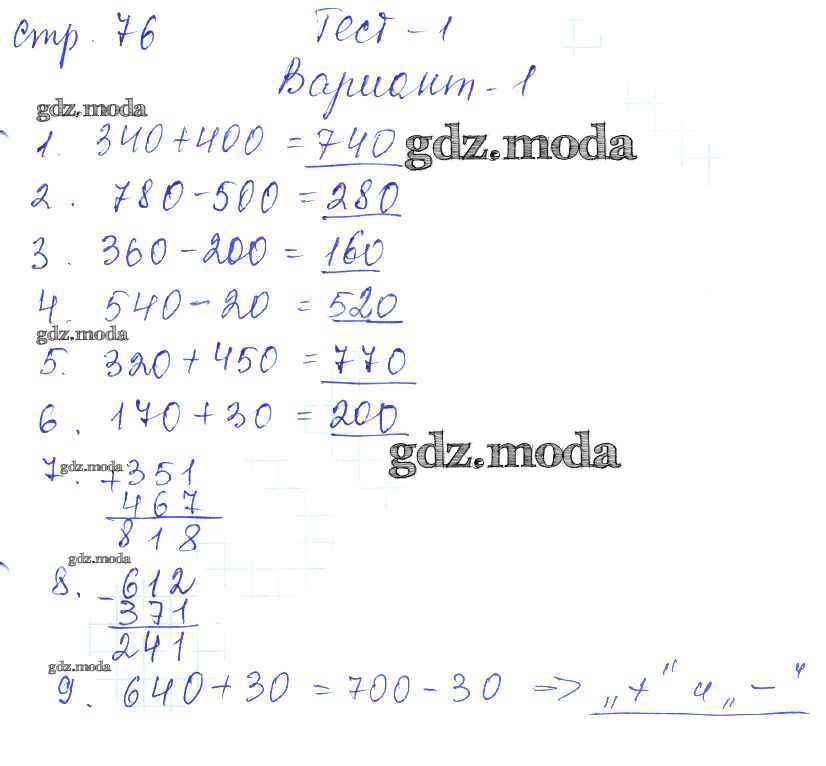 стр. 76 Тест - 1
Вариант - 1
gdz.moda
1. 340 + 400 = 740 gdz.moda
2. 780 - 500 = 280
3. 360 - 200 = 160
4. 540 - 20 = 520
gdz.moda
5. 320 + 450 = 770
6. 170 + 30 = 200
gdz.moda
7. gdz.moda + 351
467
818
gdz.moda
8. - 612
371
241
gdz.moda
9. 640 + 30 = 700 - 30 => „+" и „-"